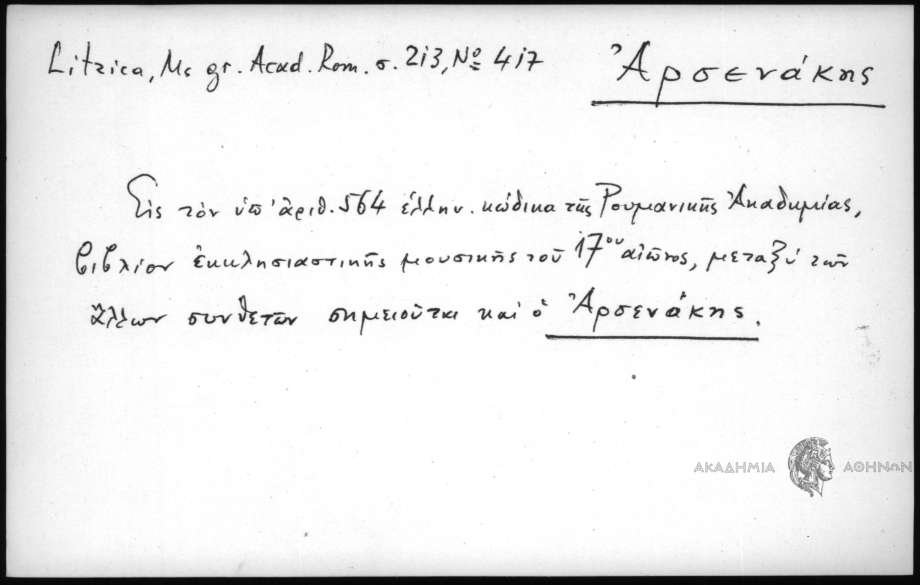 Litzica, Ms gr. Acad. Rom. σ. 213, Nº 417
Ἀρσενάκης
Εἰς τὸν ὑπ' ἀριθ. 564 ἑλλην. κώδικα τῆς Ρουμανικῆς Ἀκαδημίας,
βιβλίον ἐκκλησιαστικῆς μουσικῆς τοῦ 17ου αἰῶνος, μεταξὺ τῶν
ἄλλων συνθετῶν σημειοῦται καὶ ὁ Ἀρσενάκης.
ΑΚΑΔΗΜΙΑ ΑΘΗΝΩΝ